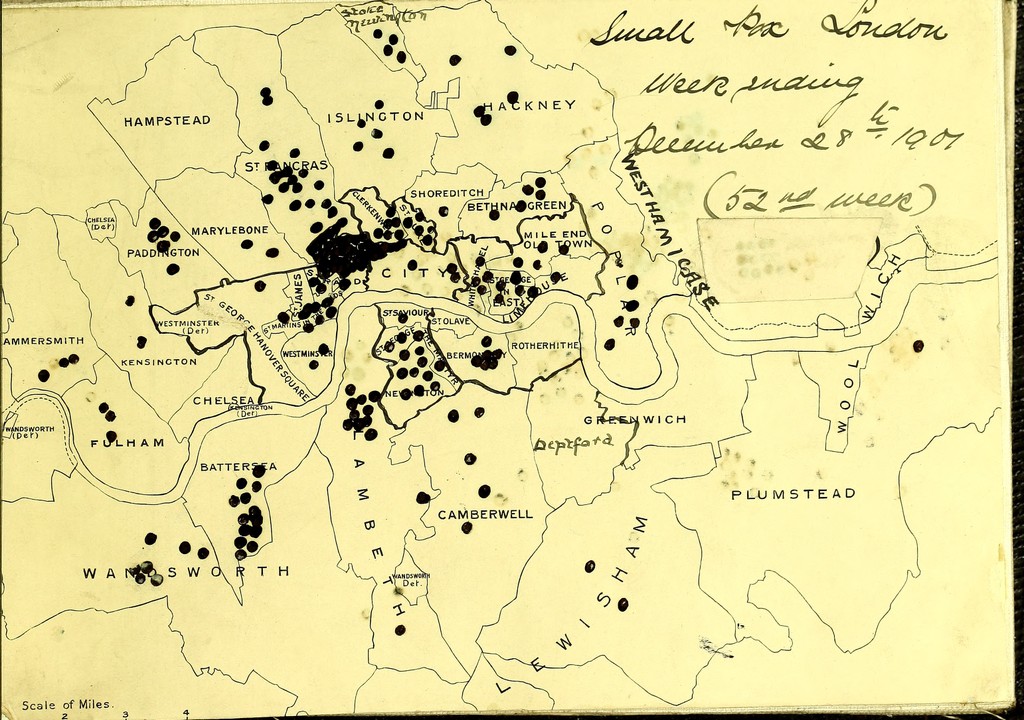 Small Pox London
Week ending
December 28th 1901
(52nd week)
Stoke
Newington
HAMPSTEAD
ISLINGTON
HACKNEY
ST PANCRAS
SHOREDITCH
BETHNAL GREEN
WEST HAM 1 CASE
CHELSEA
(Det)
MARYLEBONE
PADDINGTON
MILE END
OLD TOWN
POPLAR
CITY
ST GEORGE
IN
EAST
LIMEHOUSE
ST JANES
ST GEORGE HANOVER SQUARE
WESTMINSTER
(Det)
ST MARTINS
WESTMINSTER
ST SAVIOUR
ST OLAVE
ROTHERHITHE
BERMONDSEY
NEWINGTON
AMMERSMITH
KENSINGTON
CHELSEA
KENSINGTON
(Det)
WANDSWORTH
(Det)
FULHAM
BATTERSEA
GREENWICH
Deptford
WOOLWICH
PLUMSTEAD
LAMBETH
CAMBERWELL
WANDSWORTH
WANDSWORTH
Det.
LEWISHAM
Scale of Miles.
2 3 4